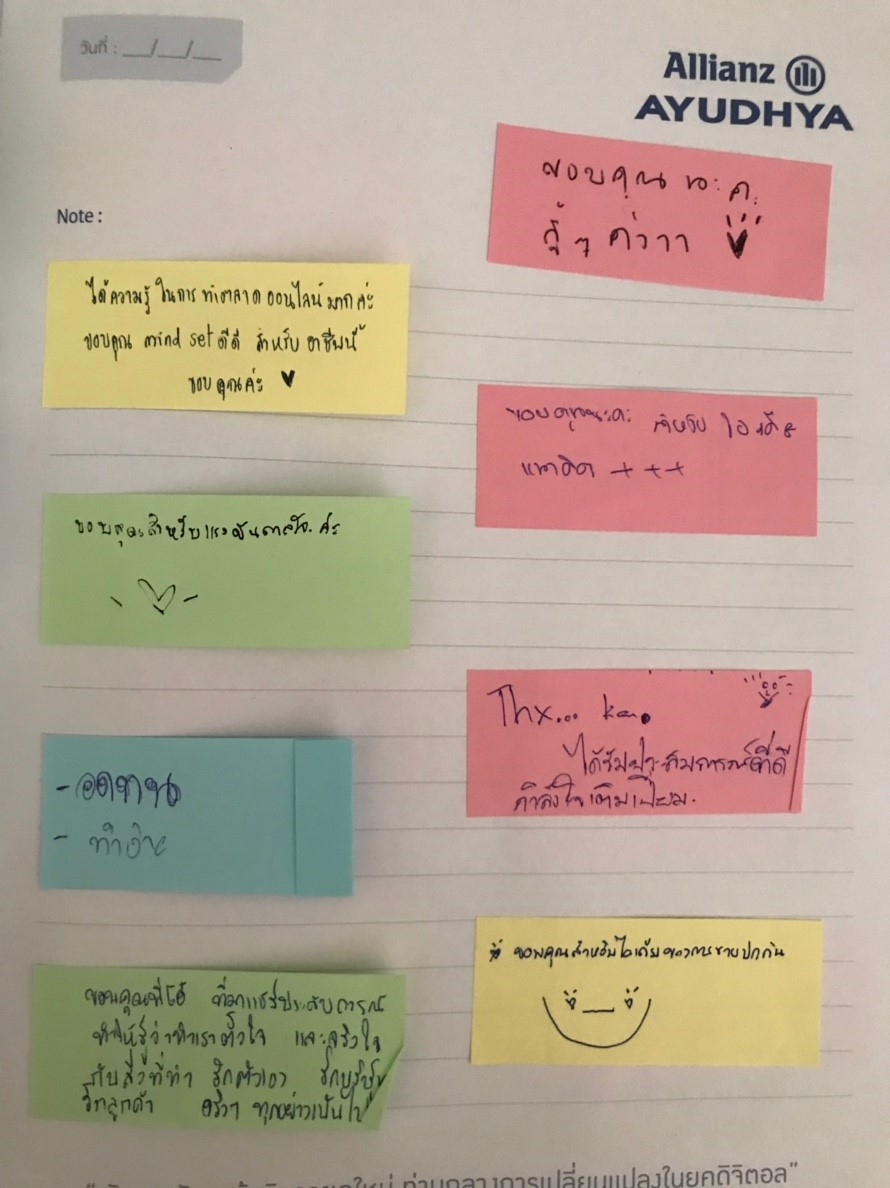 วันที่ : __/__/__
Allianz
AYUDHYA
Note :
ขอบคุณนะคะ
จุ๊ๆ ค่าาา
ได้ความรู้ ในการ ทำตลาด ออนไลน์ มากค่ะ
ขอบคุณ mind set ดีดี สำหรับ อาชีพนี้
ขอบคุณค่ะ
ขอบคุณนะคะ สำหรับ ไอเดีย
แนวคิด +++
ขอบคุณสำหรับแรงบันดาลใจค่ะ
Thx... ka.
ได้รับประสบการณ์ที่ดี
กำลังใจเต็มเปี่ยม.
- อดทน
- ทำง่าย
ขอบคุณสำหรับไอเดียของการขายปกกัน
ขอบคุณพี่โอ๋ ที่มาแชร์ประสบการณ์
ทำให้รู้ว่าถ้าเราตั้งใจ และจริงใจ
กับสิ่งที่ทำ รักตัวเอง รักบริษัท
รักลูกค้า จริงๆ ทุกอย่างเป็นไป
ท่ามกลางการเปลี่ยนแปลงในยุคดิจิตอล"